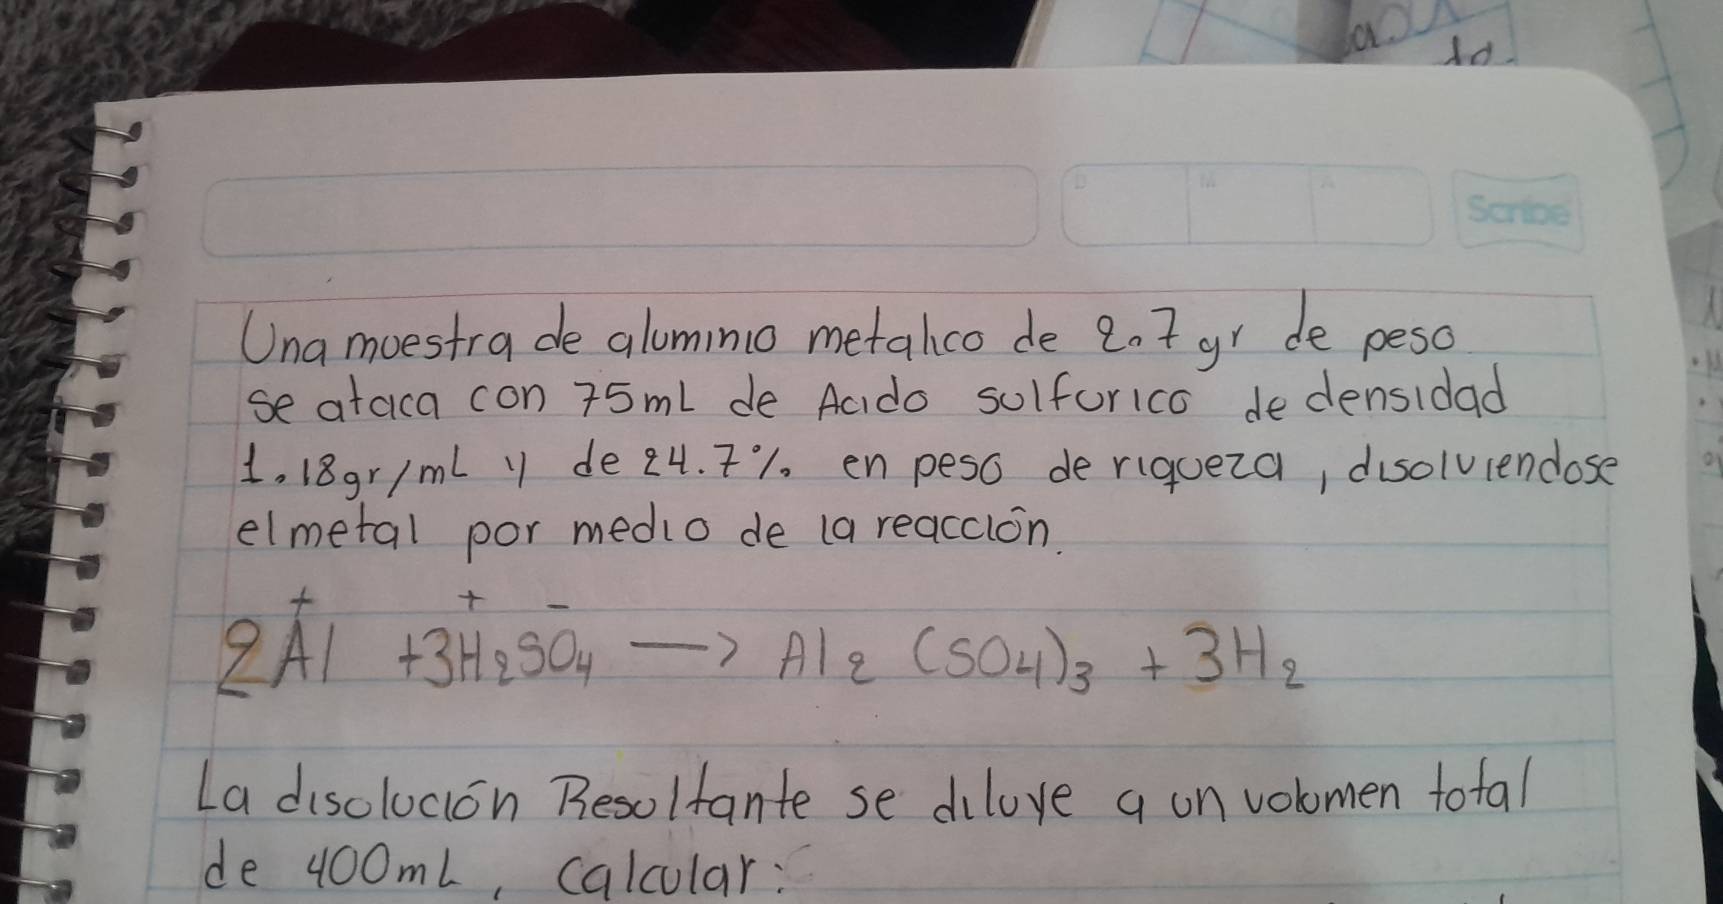 D M A
Scribe
Una muestra de aluminio metalico de 2.7 gr de peso
se ataca con 75mL de Acido sulfurico de densidad
1.18gr/mL y de 24.7% en peso de riqueza, disolviendose
el metal por medio de la reacción.
+ + -
2Al +3H2SO4 —> Al2 (SO4)3 + 3H2
La disolución Resultante se diluye a un volumen total
de 400mL, calcular: